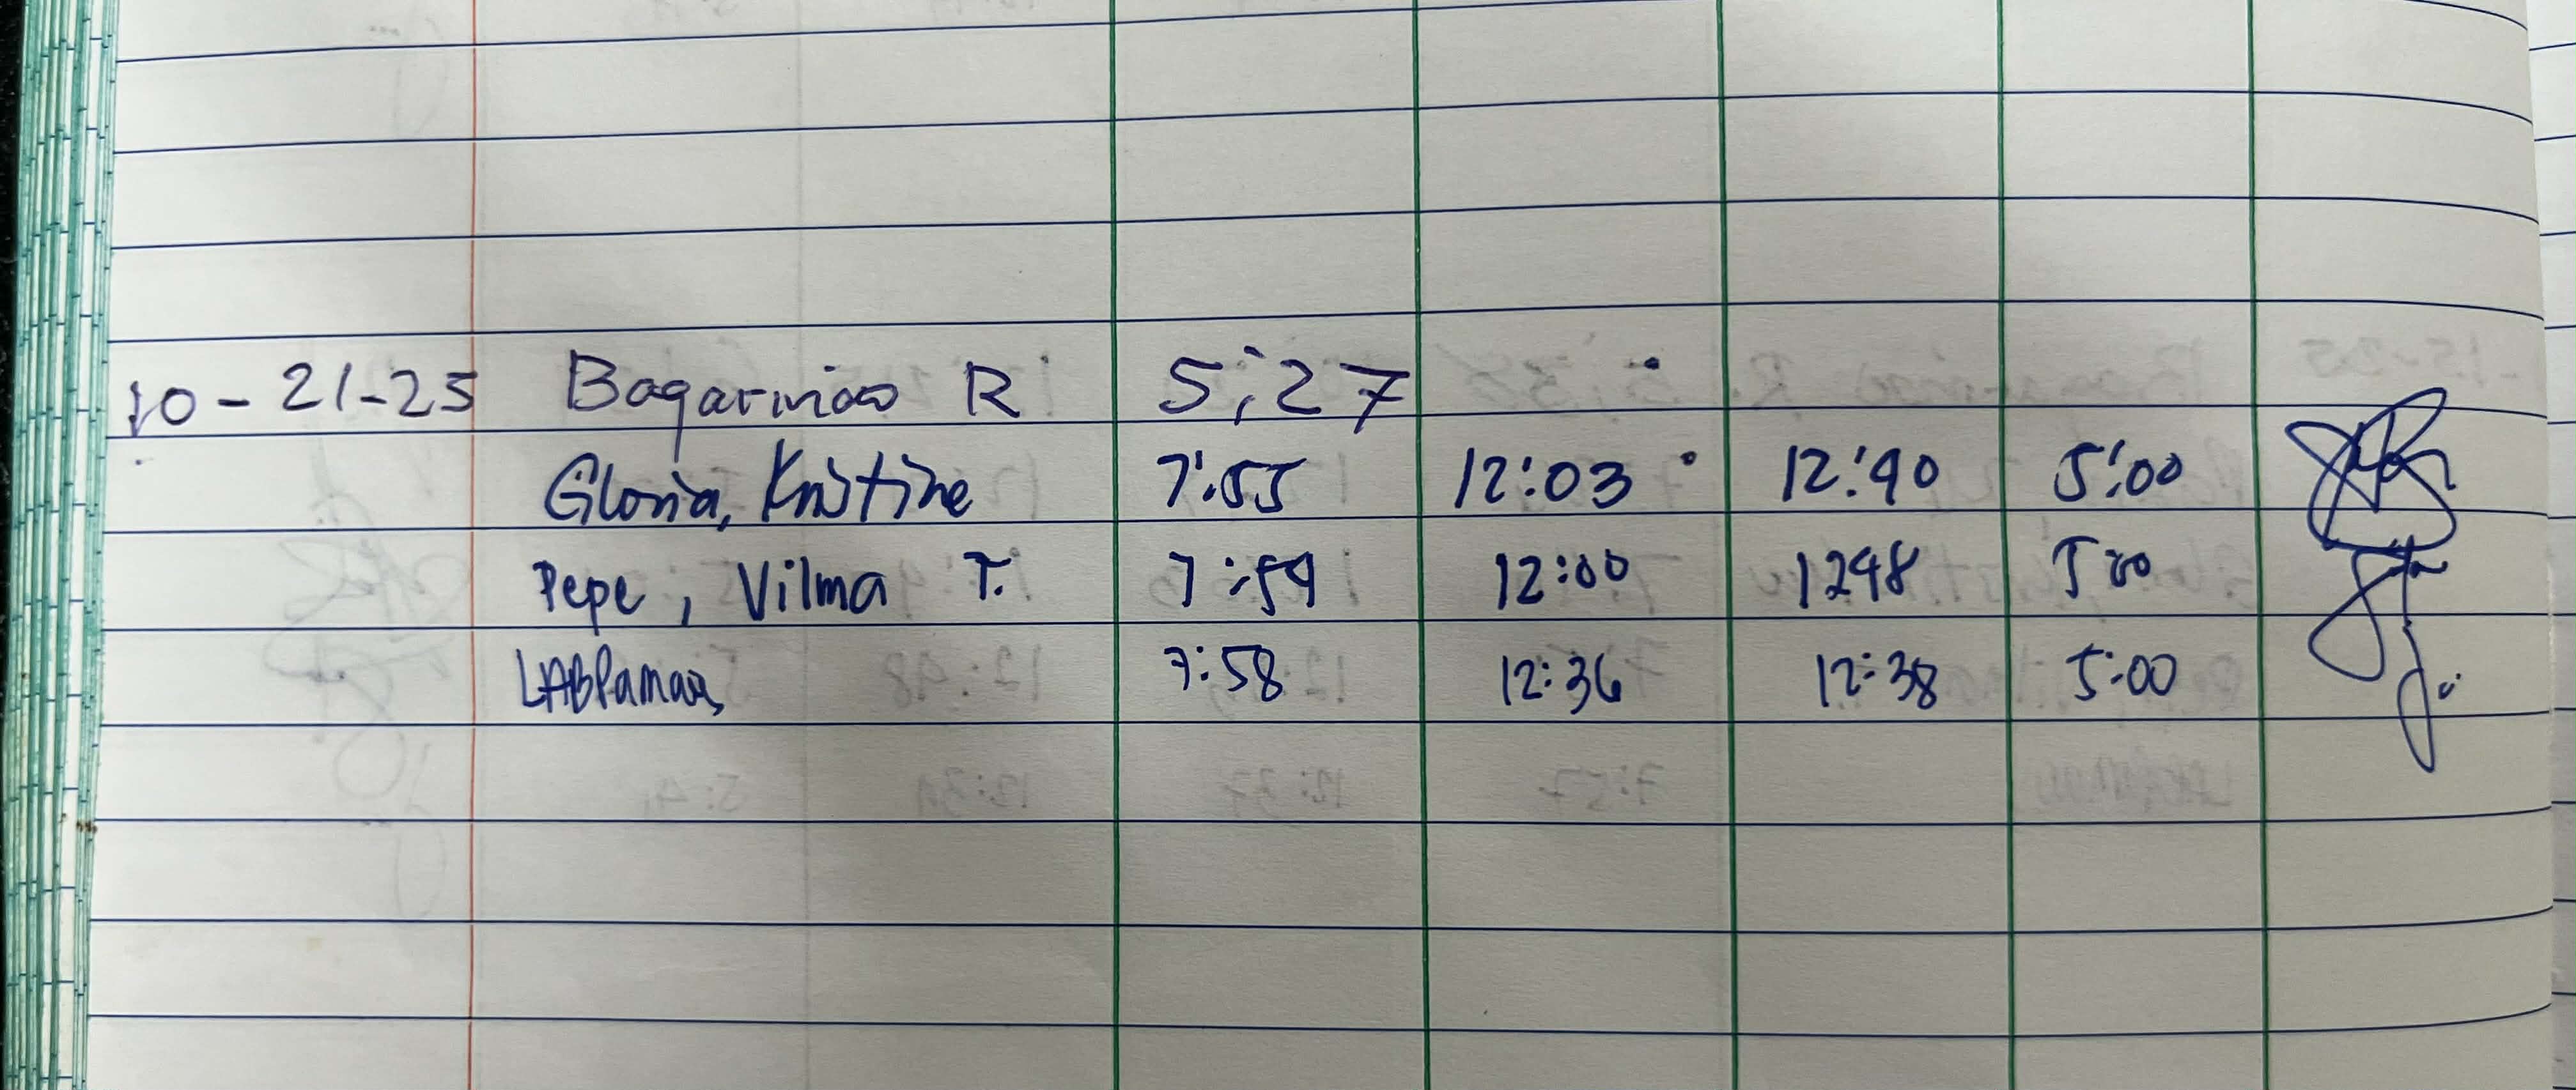 10-21-25 Bagarinao R 5:27
Gloria, Kristine 7:55 12:03 12:40 5:00
Pepe, Vilma T. 7:59 12:00 1248 5:00
7:58 12:36 12:38 5:00